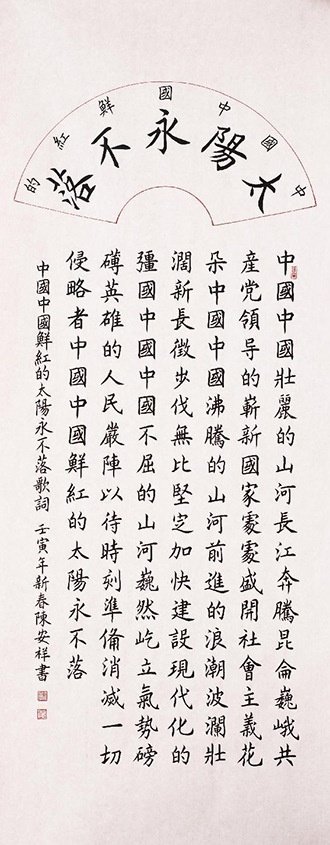 中國中國鮮紅的
太陽永不落
中國中國壯麗的山河長江奔騰昆侖巍峨共
産党領导的嶄新國家處處盛開社會主義花
朵中國中國沸騰的山河前進的浪潮波瀾壯
濶新長徵步伐無比堅定加快建設現代化的
彊國中國中國不屈的山河巍然屹立氣勢磅
礴英雄的人民嚴陣以待時刻準備消滅一切
侵略者中國中國鮮紅的太陽永不落
中國中國鮮紅的太陽永不落歌詞 壬寅年新春陳安祥書